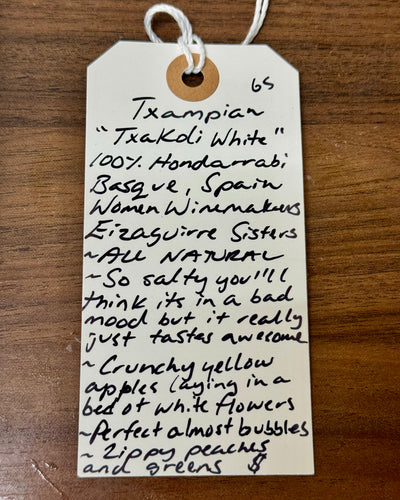 65
Txampian
"Txakoli White"
100% Hondarrabi
Basque, Spain
Women Winemakers
Eizaguirre Sisters
~ALL NATURAL
~So salty you'll
think its in a bad
mood but it really
just tastes awesome
~Crunchy yellow
apples laying in a
bed of white flowers
~Perfect almost bubbles
~Zippy peaches
and greens $